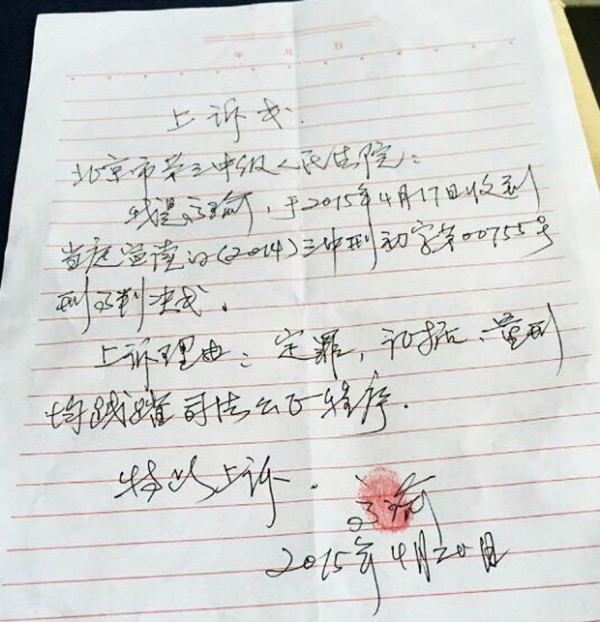 年 月 日
上诉书
北京市第三中级人民法院：
我是高瑜，于2015年4月17日收到
当庭宣读的(2014)三中刑初字第00755号
刑事判决书。
上诉理由：定罪，证据、量刑
均践踏司法公正程序。
特此上诉。
高瑜
2015年4月20日